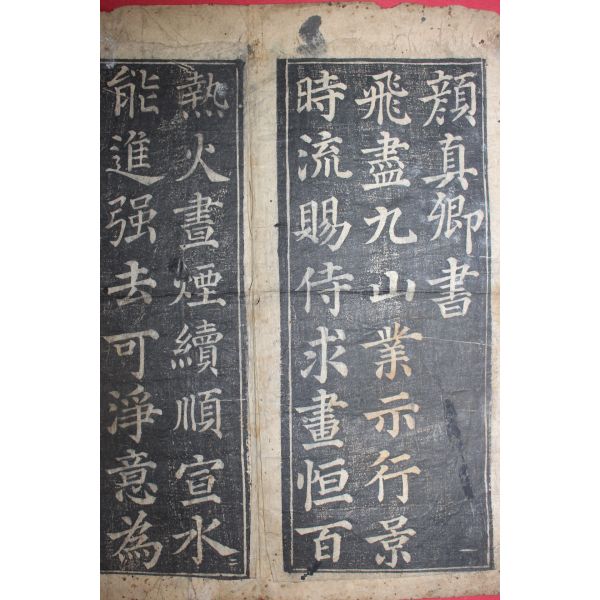 顔真卿書
飛盡九山業示行景
時流賜侍求畫恒百
熱火晝煙續順宣水
能進强去可淨意為